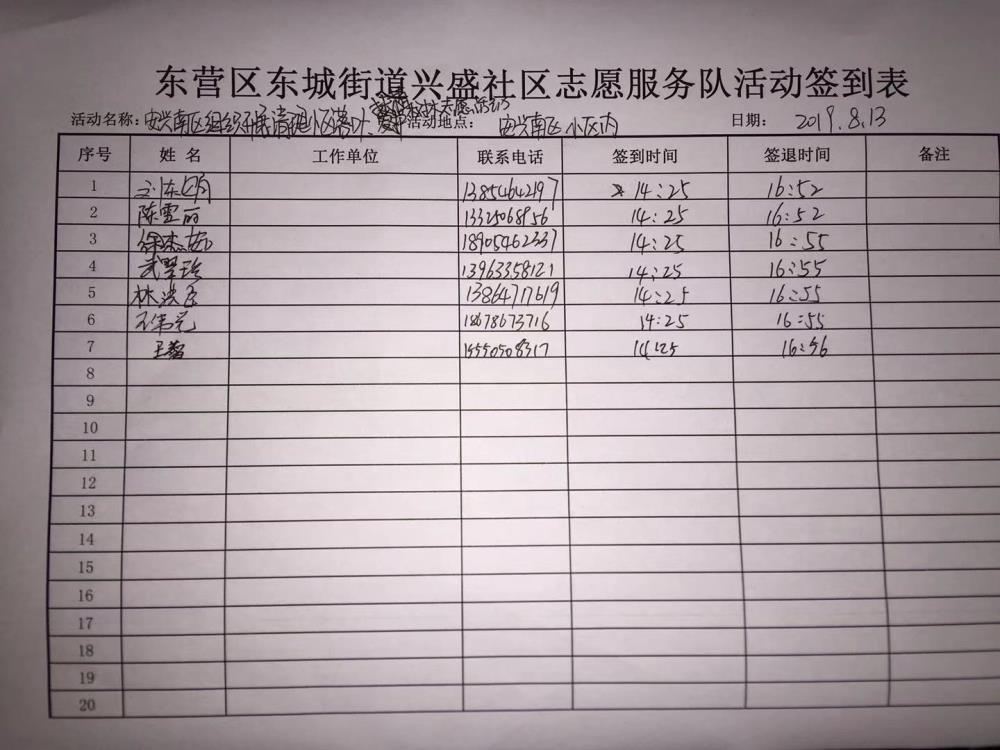 东营区东城街道兴盛社区志愿服务队活动签到表
活动名称：安兴南区组织开展清理小区落叶、 活动地点： 安兴南区小区内 日期： 2019.8.13
序号 姓名 工作单位 联系电话 签到时间 签退时间 备注
1 刘东明 13854642197 14:25 16:52
2 陈雪丽 13325068956 14:25 16:52
3 徐杰 18905462337 14:25 16:55
4 武翠珍 13963358121 14:25 16:55
5 林洪臣 13864717619 14:25 16:55
6 王伟元 18678673716 14:25 16:55
7 王磊 15550508317 14:25 16:56
8
9
10
11
12
13
14
15
16
17
18
19
20